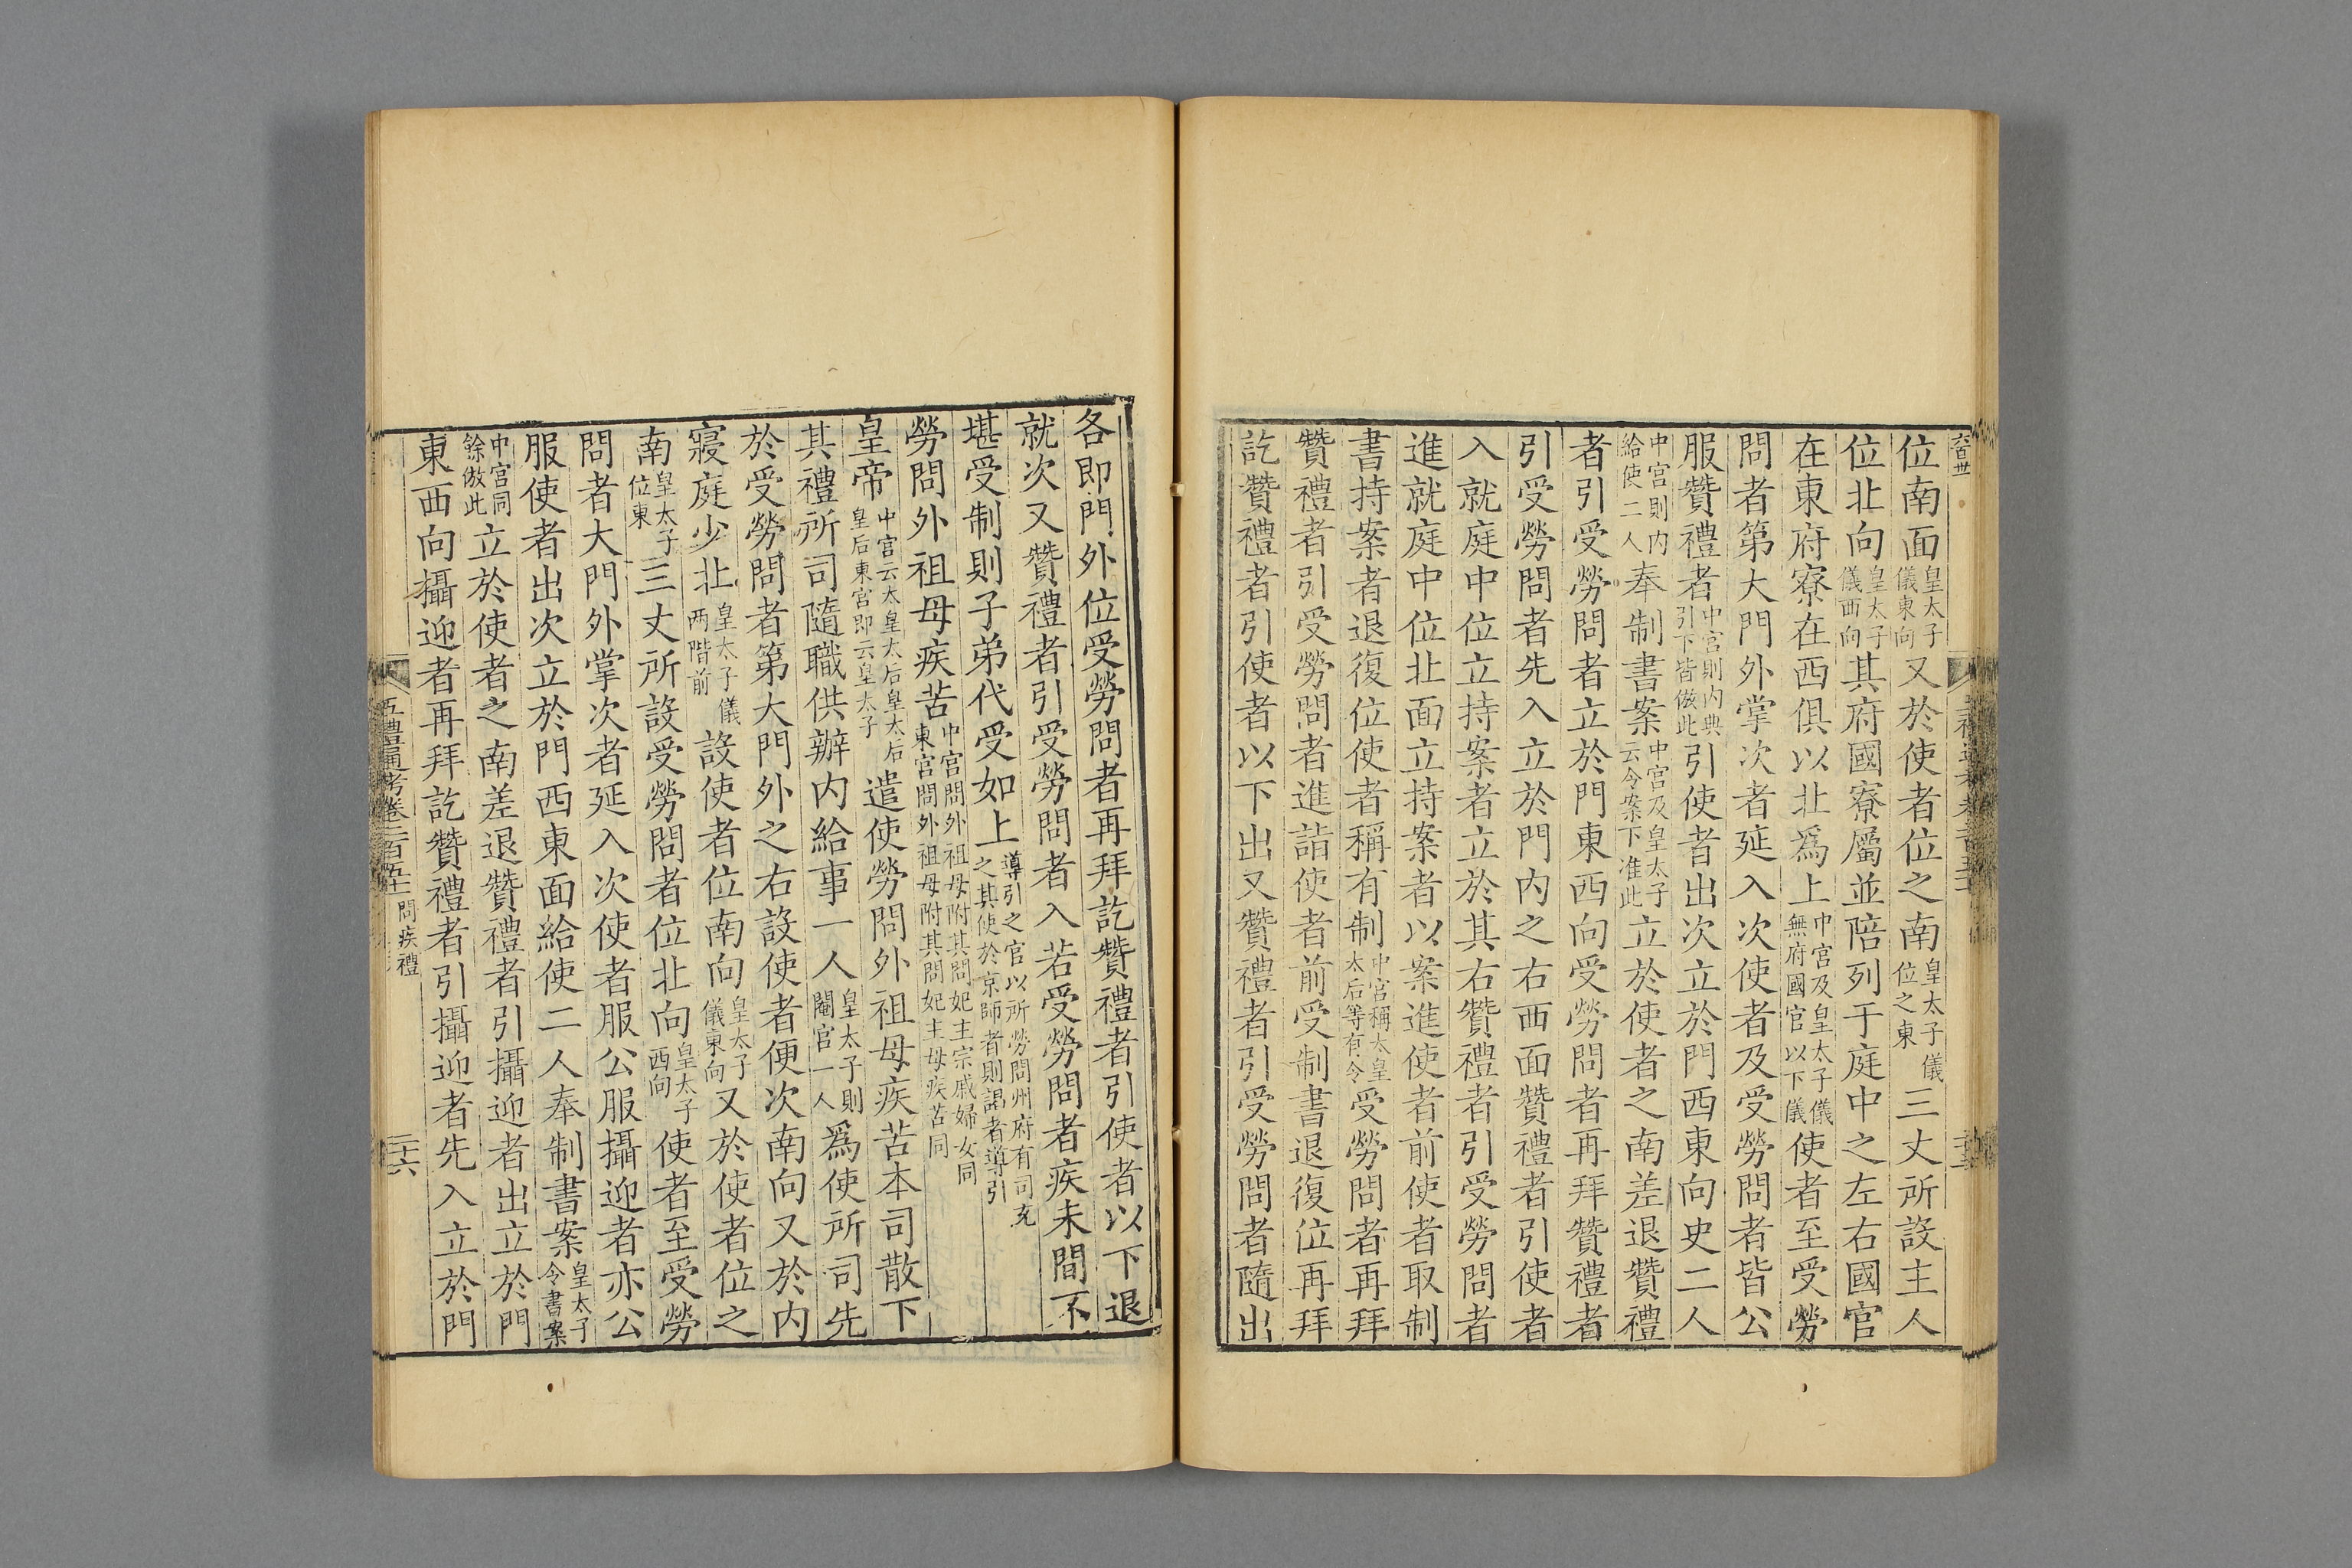 位南面皇太子儀東向又於使者位之南皇太子儀位之東三丈所設主人
位北向皇太子儀西向其府國寮屬並陪列于庭中之左右國官
在東府寮在西俱以北爲上中宫及皇太子儀無府國官以下儀使者至受勞
問者第大門外掌次者延入次使者及受勞問者皆公
服贊禮者中宫則内典引下皆倣此引使者出次立於門西東向史二人
中宫則内給使二人奉制書案中宫及皇太子云令案下准此立於使者之南差退贊禮
者引受勞問者立於門東西向受勞問者再拜贊禮者
引受勞問者先入立於門内之右西面贊禮者引使者
入就庭中位立持案者立於其右贊禮者引受勞問者
進就庭中位北面立持案者以案進使者前使者取制
書持案者退復位使者稱有制中宫稱太皇太后等有令受勞問者再拜
贊禮者引受勞問者進詣使者前受制書退復位再拜
訖贊禮者引使者以下出又贊禮者引受勞問者隨出
各即門外位受勞問者再拜訖贊禮者引使者以下退
就次又贊禮者引受勞問者入若受勞問者疾未間不
堪受制則子弟代受如上導引之官以所勞問州府有司充之其使於京師者則謁者導引
勞問外祖母疾苦中宫問外祖母附其問妃主宗戚婦女同東宫問外祖母附其問妃主母疾苦同
皇帝中宫云太皇太后皇太后皇后東宫即云皇太子遣使勞問外祖母疾苦本司散下
其禮所司隨職供辦内給事一人皇太子則閹官一人爲使所司先
於受勞問者第大門外之右設使者便次南向又於内
寢庭少北皇太子儀两階前設使者位南向皇太子儀東向又於使者位之
南皇太子位東三丈所設受勞問者位北向皇太子西向使者至受勞
問者大門外掌次者延入次使者服公服攝迎者亦公
服使者出次立於門西東面給使二人奉制書案皇太子令書案
中宫同餘倣此立於使者之南差退贊禮者引攝迎者出立於門
東西向攝迎者再拜訖贊禮者引攝迎者先入立於門
五禮通考卷二百五十一 問疾禮
二十六